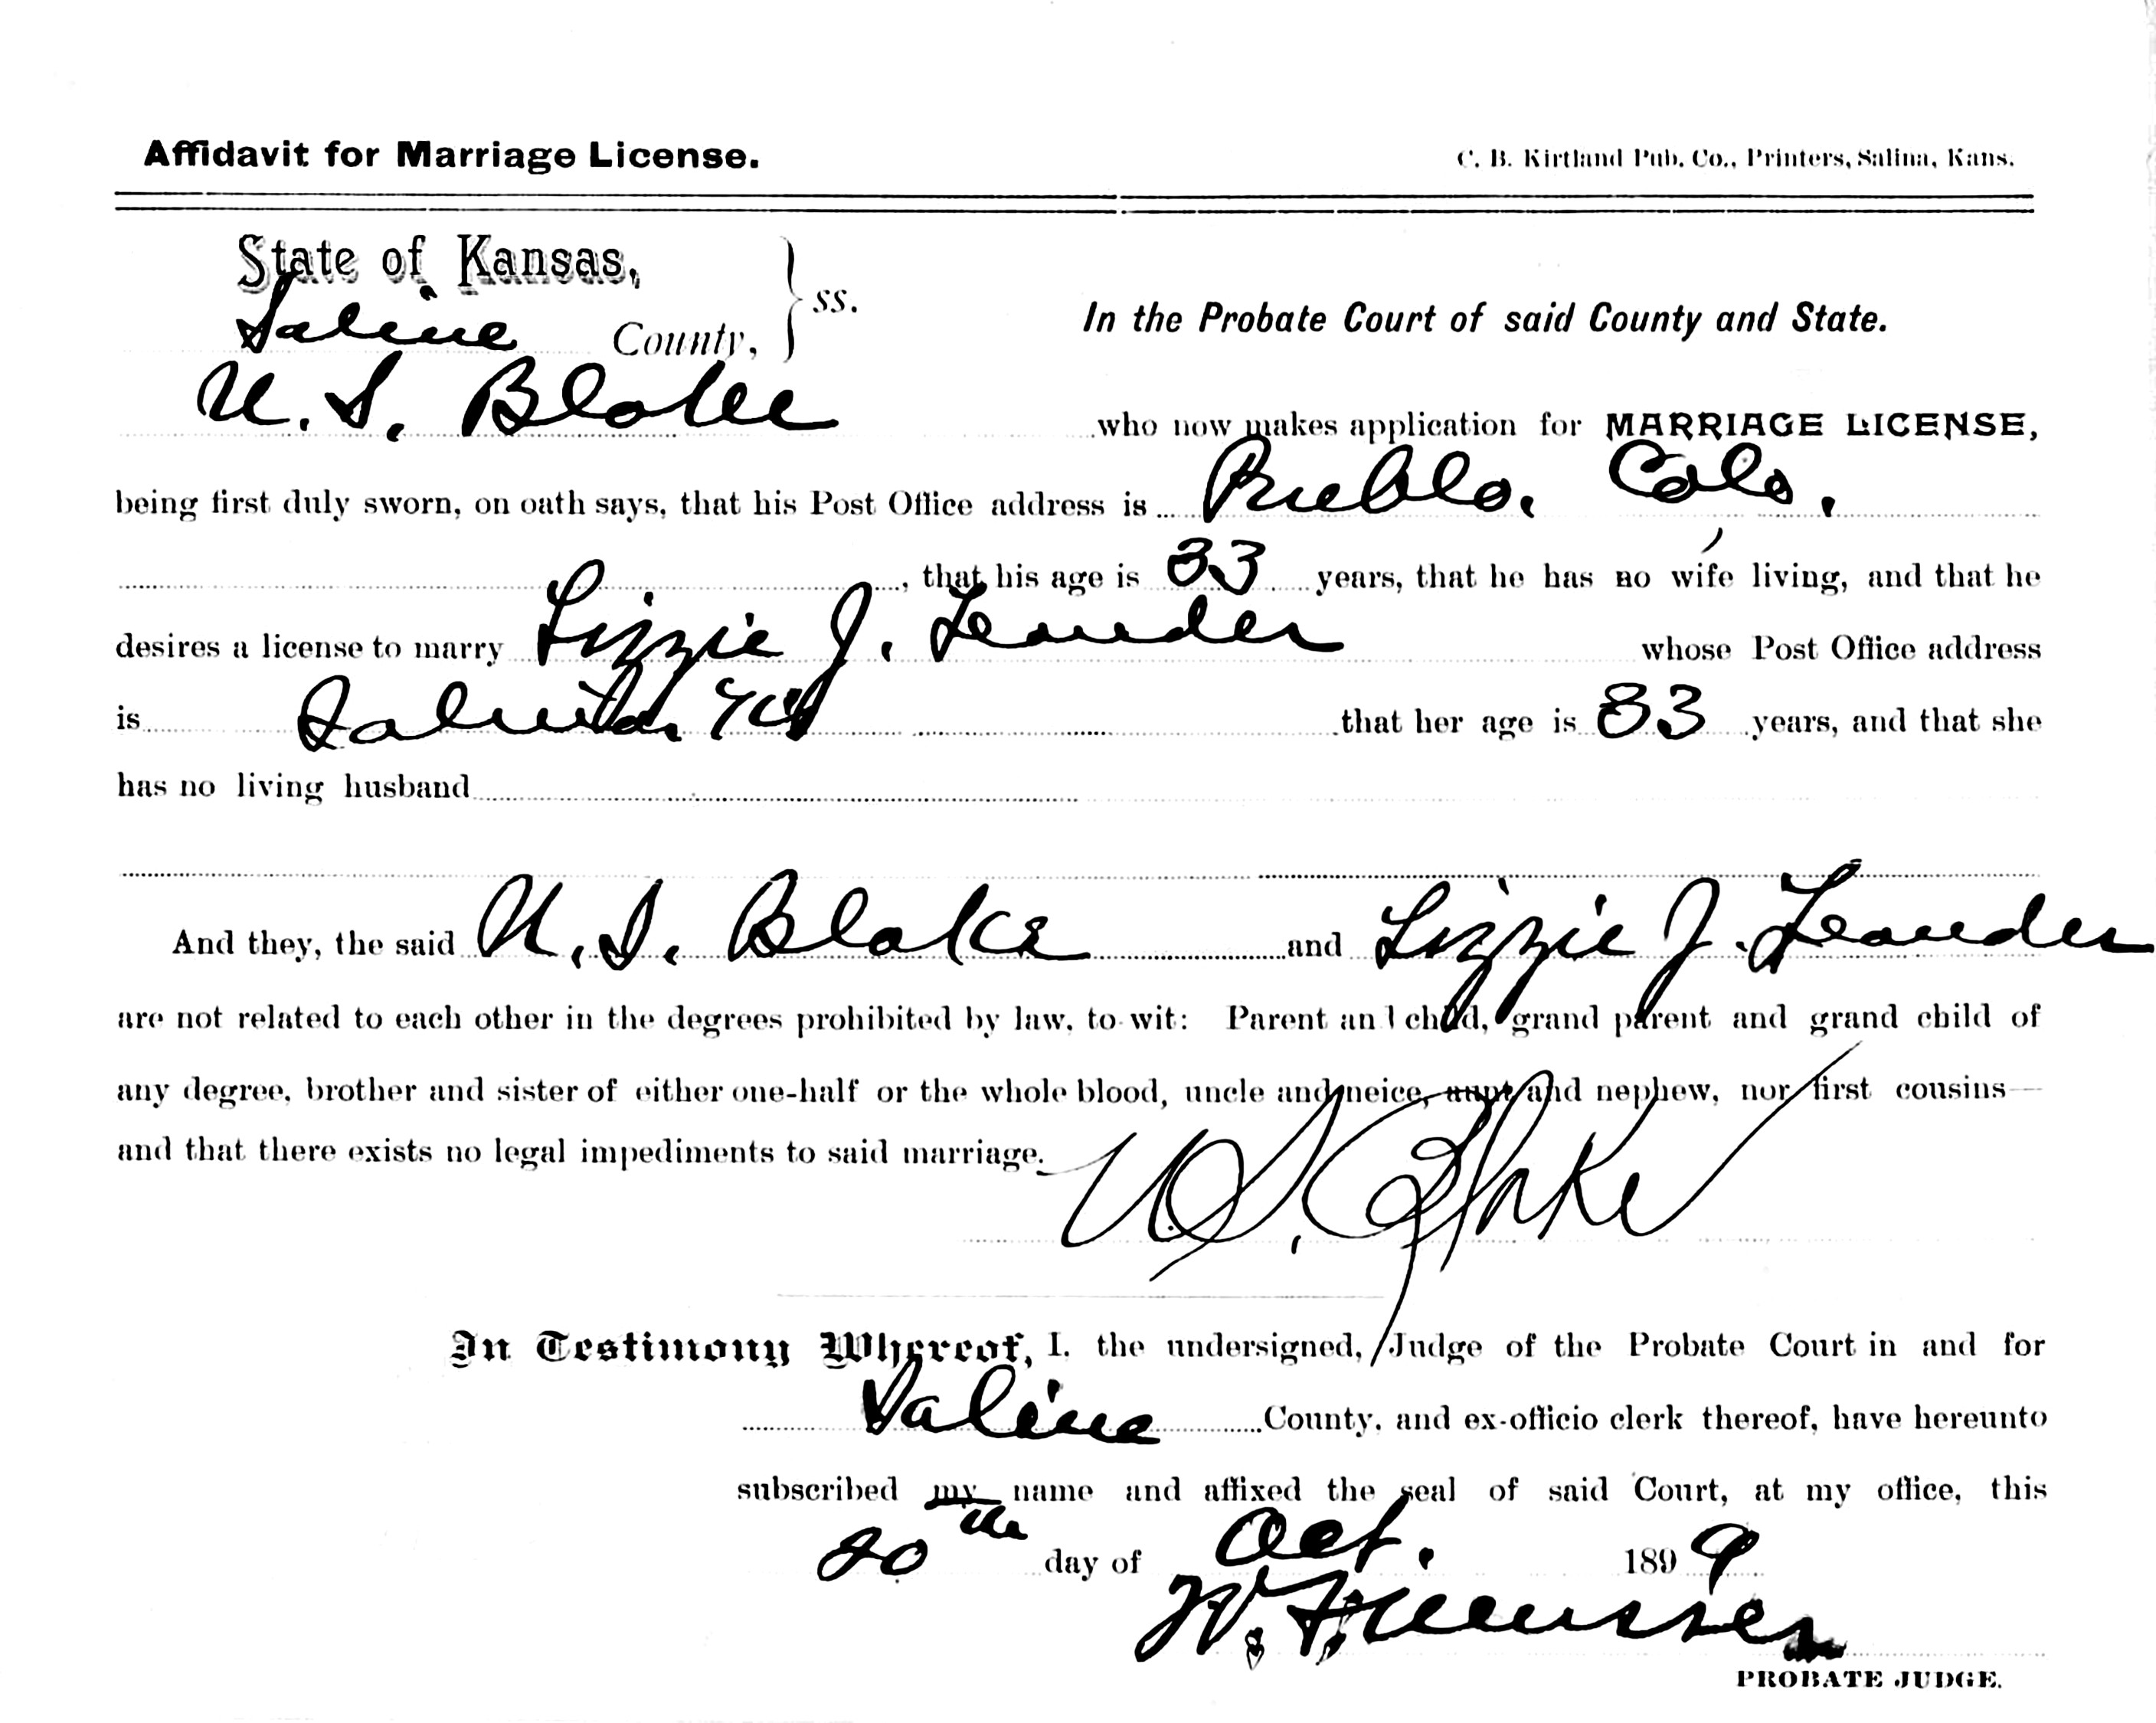 Affidavit for Marriage License. C. B. Kirtland Pub. Co., Printers, Salina, Kans.
State of Kansas, } ss.
Saline County, In the Probate Court of said County and State.
U. S. Blake who now makes application for MARRIAGE LICENSE,
being first duly sworn, on oath says, that his Post Office address is Pueblo. Colo.
, that his age is 33 years, that he has no wife living, and that he
desires a license to marry Lizzie J. Leander whose Post Office address
is Salina that her age is 33 years, and that she
has no living husband
And they, the said U. S. Blake and Lizzie J. Leander
are not related to each other in the degrees prohibited by law, to wit: Parent and child, grand parent and grand child of
any degree, brother and sister of either one-half or the whole blood, uncle and neice, aunt and nephew, nor first cousins—
and that there exists no legal impediments to said marriage.
U. S. Blake
In Testimony Whereof, I, the undersigned, Judge of the Probate Court in and for
Saline County, and ex-officio clerk thereof, have hereunto
subscribed my name and affixed the seal of said Court, at my office, this
20th day of Oct. 1899
PROBATE JUDGE.